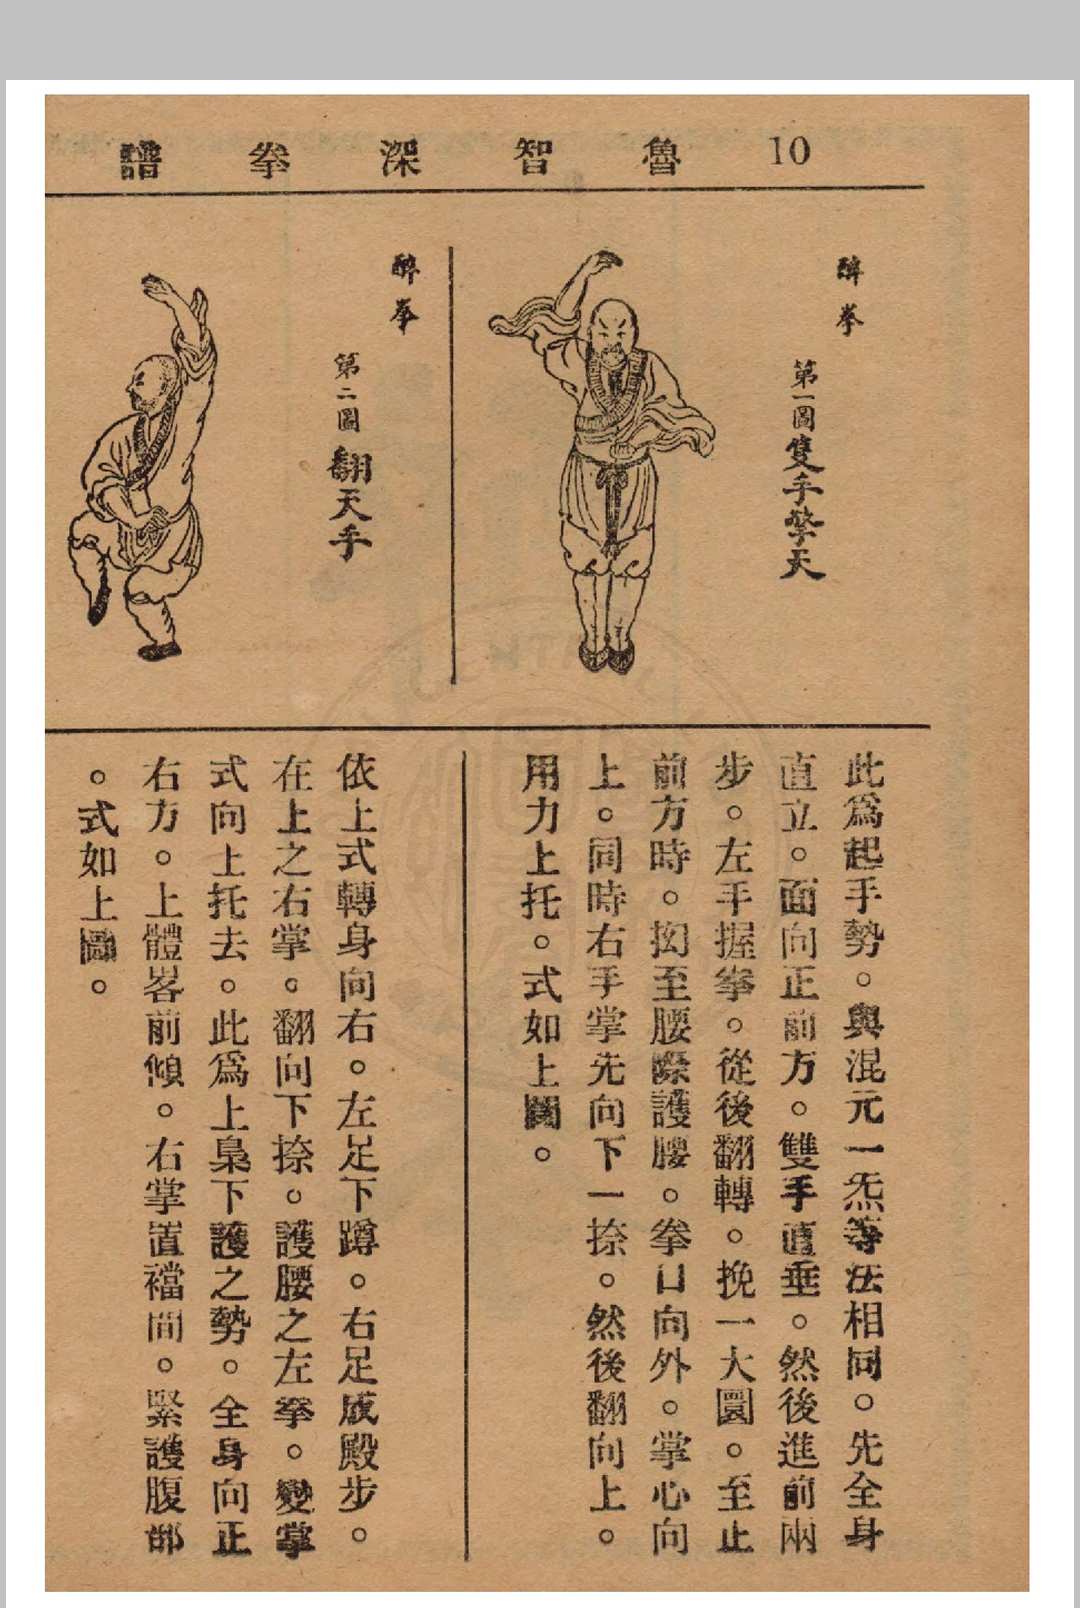 10 魯智深拳譜
醉拳
第一圖 雙手擎天
醉拳
第二圖 翻天手
此爲起手勢。與混元一炁等法相同。先全身
直立。面向正前方。雙手直垂。然後進前兩
步。左手握拳。從後翻轉。挽一大圜。至止
前方時。抝至腰際護腰。拳口向外。掌心向
上。同時右手掌先向下一捺。然後翻向上。
用力上托。式如上圖。
依上式轉身向右。左足下蹲。右足成殿步。
在上之右掌。翻向下捺。護腰之左拳。變掌
式向上托去。此爲上梟下護之勢。全身向正
右方。上體畧前傾。右掌置襠間。緊護腹部
。式如上圖。